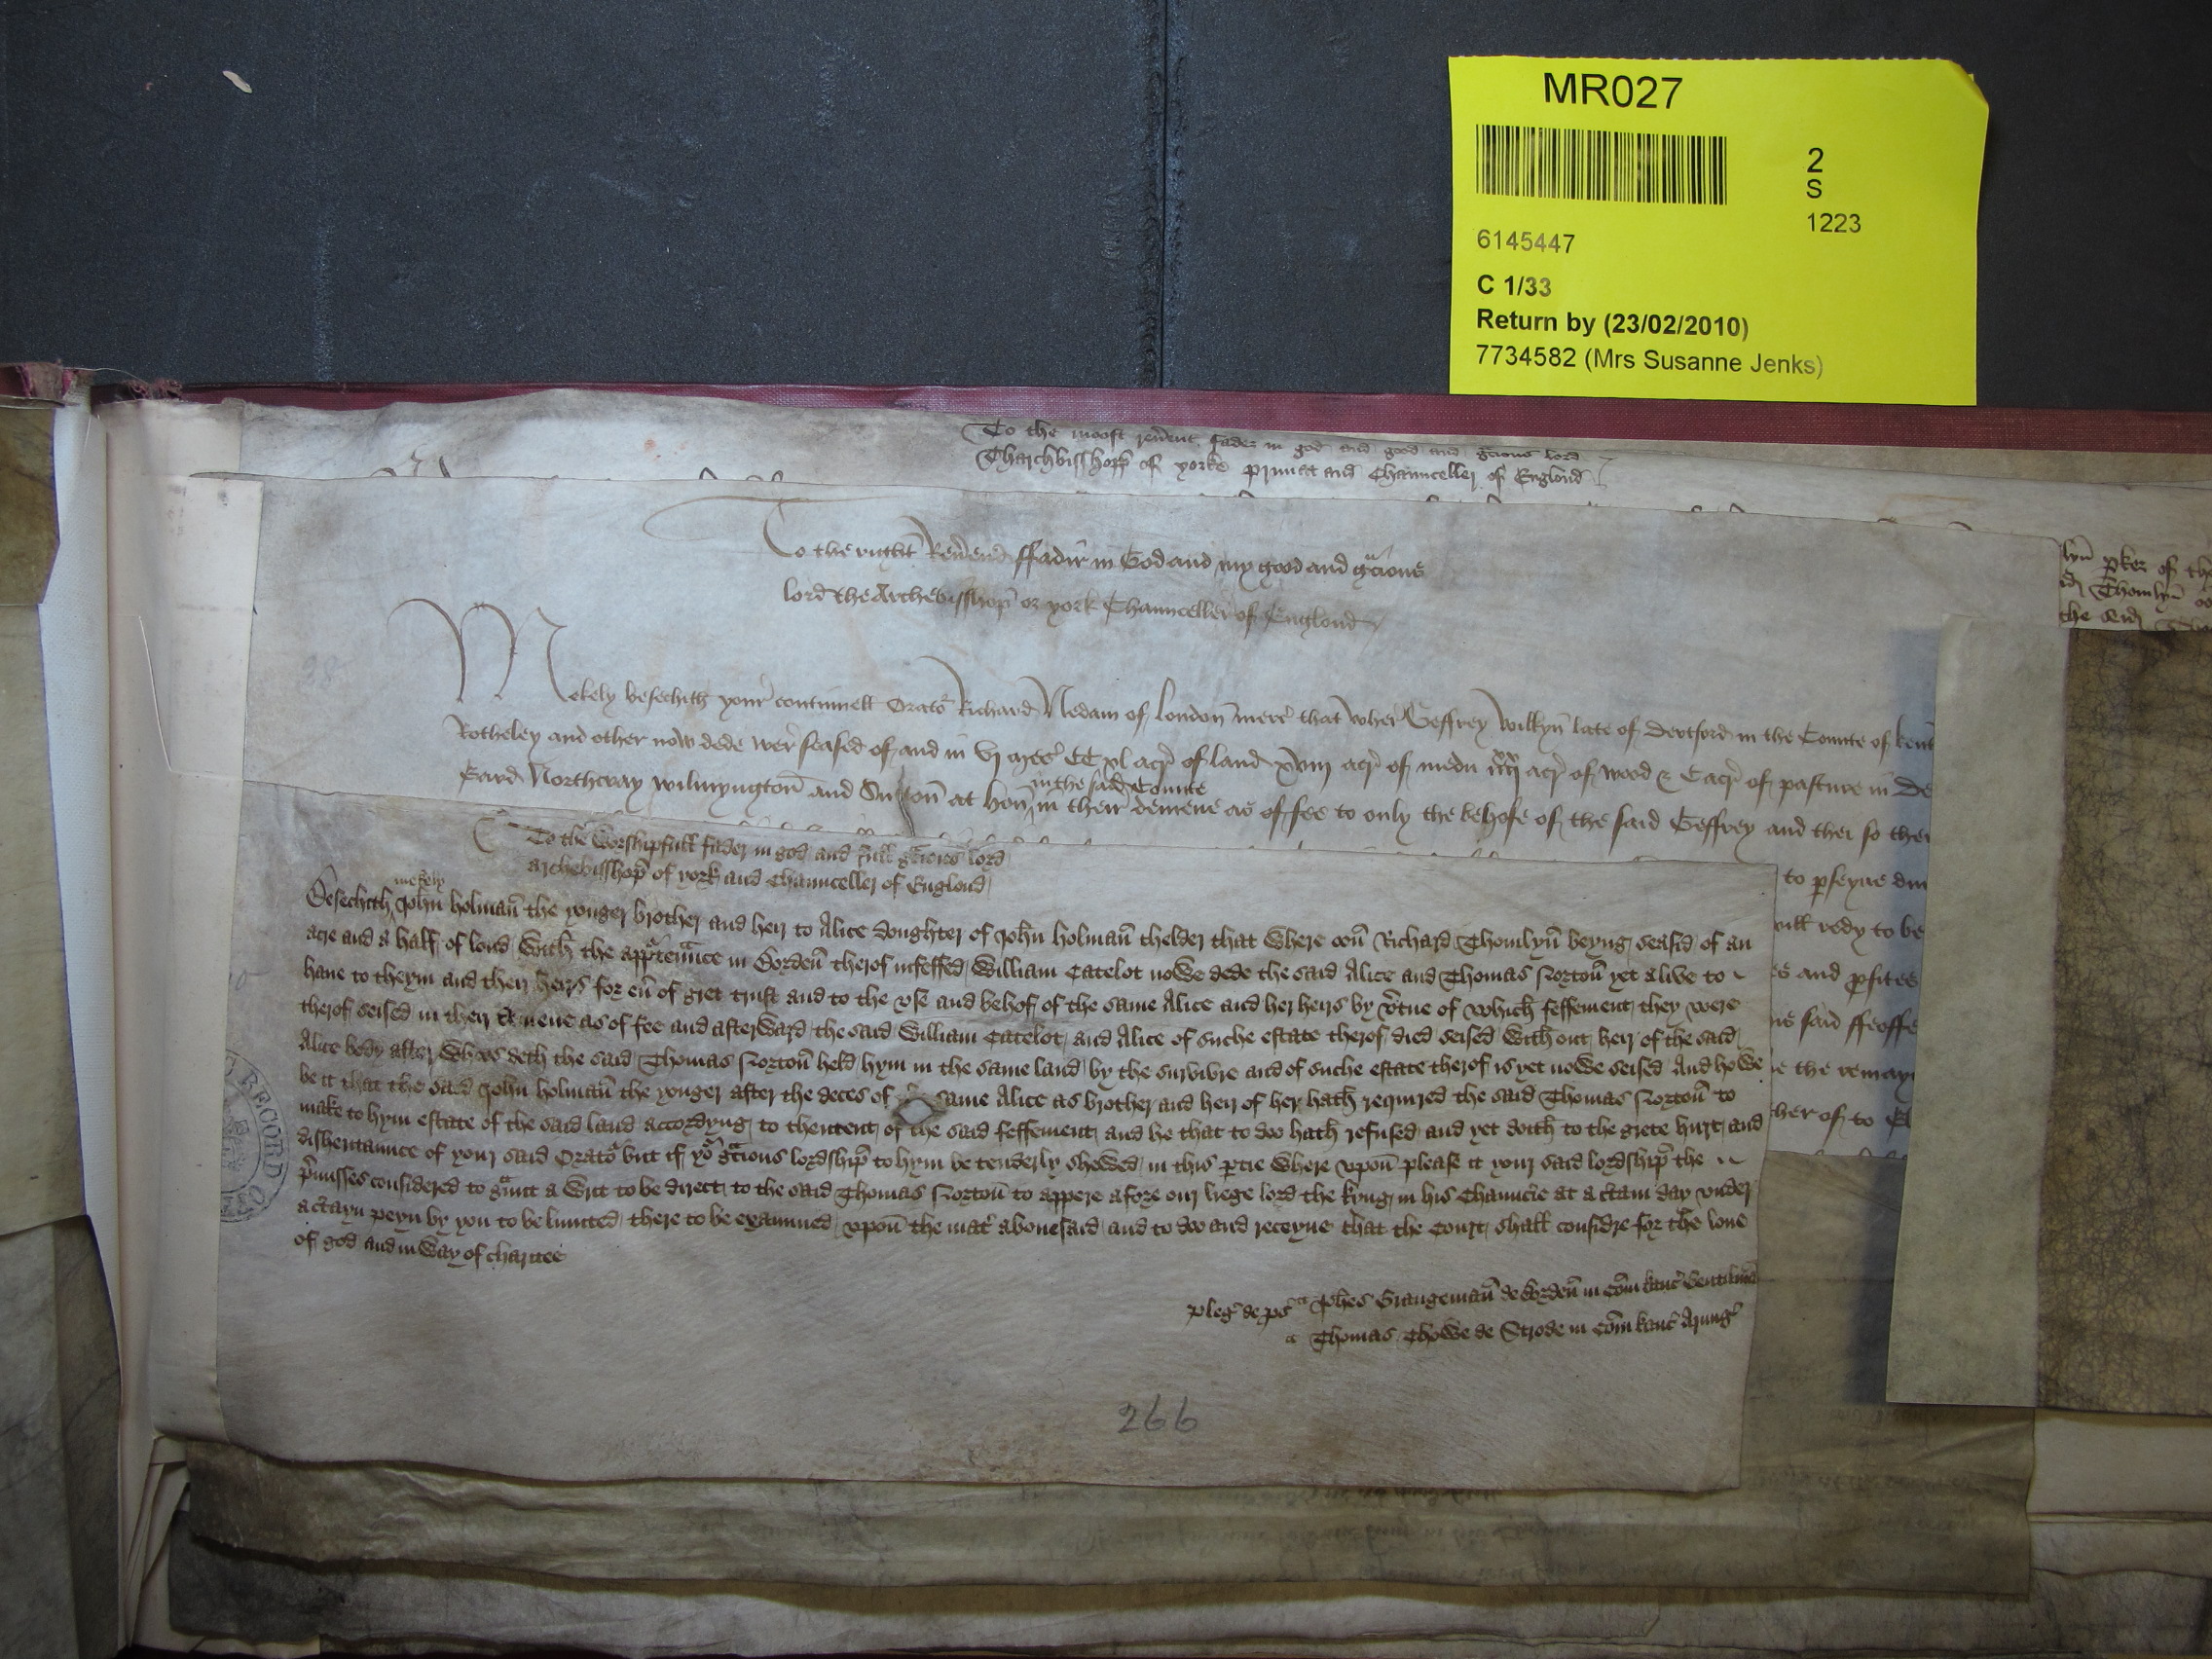 MR027
2
S
1223
6145447
C 1/33
Return by (23/02/2010)
7734582 (Mrs Susanne Jenks)
To the moost reu̅ent fader in god and good and gͣcious lord
Tharchbisshopp̅ of yorke primat and Chaunceller of Englond
To the right Reu̅end ffadir in God and my good and gͣcious
lord the Archebisshop̅ of york Chaunceller of Englond
Mekely besechith your contynuell Orato͛ Richard Nedam of london̅ merc͛ that wher Geffrey Willyn̅ late of Dertford in the Counte of kent
Rotheley and other now dede wer seased of and in vj mees͛ CC xl acr͛ of land xviij acr͛ of medu acr͛ of wood & C acr͛ of pasture in De
Eard Northcray wilmyngton̅ and Sutton̅ at hon̅ in the said Counte in their demene as of fee to only the behofe of the said Geffrey and thei so ther
lyn̅ pker of the
Thomlyn̅
the seid
to pseyue
will redy to be
es and pfites
said ffeoffe
the remayn
her of to
To the Worshipfull fader in god and full gͣcious lord
archebisshop̅ of york and Chaunceller of Englond
Besechith mekely John̅ holman̅ the yonger brother and heir to Alice doughter of John̅ holman̅ thelder that Where oon̅ Richard Thomlyn̅ beyng seasid of an
acre and a half of lond With̅ the appͬtenͣnce in Borden̅ therof infeffed William Catelot nowe dede the said Alice and Thomas Norton̅ yet alive to
haue to theym and their heirs for eu̅ of gret trust and to the vse and behof of the same Alice and her heirs by v̅tue of which̅ feffement they were
therof seised in their demene as of fee and afterward the said William Catelot and Alice of suche estate therof died seised With̅ out heir of the said
Alice body after Whos deth the said Thomas Norton̅ held hym in the same land by the survivre and of suche estate therof is yet nowe seised And howe
be it that the said John holman̅ the yonger after the deces of same Alice as brother and heir of her hath̅ required the said Thomas Norton̅ to
make to hym estate of the said land accordyng to thentent of the said feffement and he that to doo hath̅ refused and yet doith̅ to the grete hurt and
disheritaunce of your said Orato͛ but if yoͬ gͣcious lordship̅ to hym be tenderly shewed in this ptie Where vpon̅ please it your said lordship̅ the
p͛misses considered to gͣunt a Writ to be direct to the said Thomas Norton̅ to appere afore our liege lord the kyng in his Chaunc͛ie at a c͛tain day vnder
a c͛tayn peyn by you to be limited there to be examined vpon̅ the mat͛ abouesaid and to doo and receyue that the Court shall considre for the loue
of god and in Way of charitee
pleg͛ de ps͛ Joh̅es Grangeman̅ de Borden̅ in Com̅ kanc͛ Gentilman̅
Thomas Chowe de Strode in Com̅ kanc͛
RECORD O
266